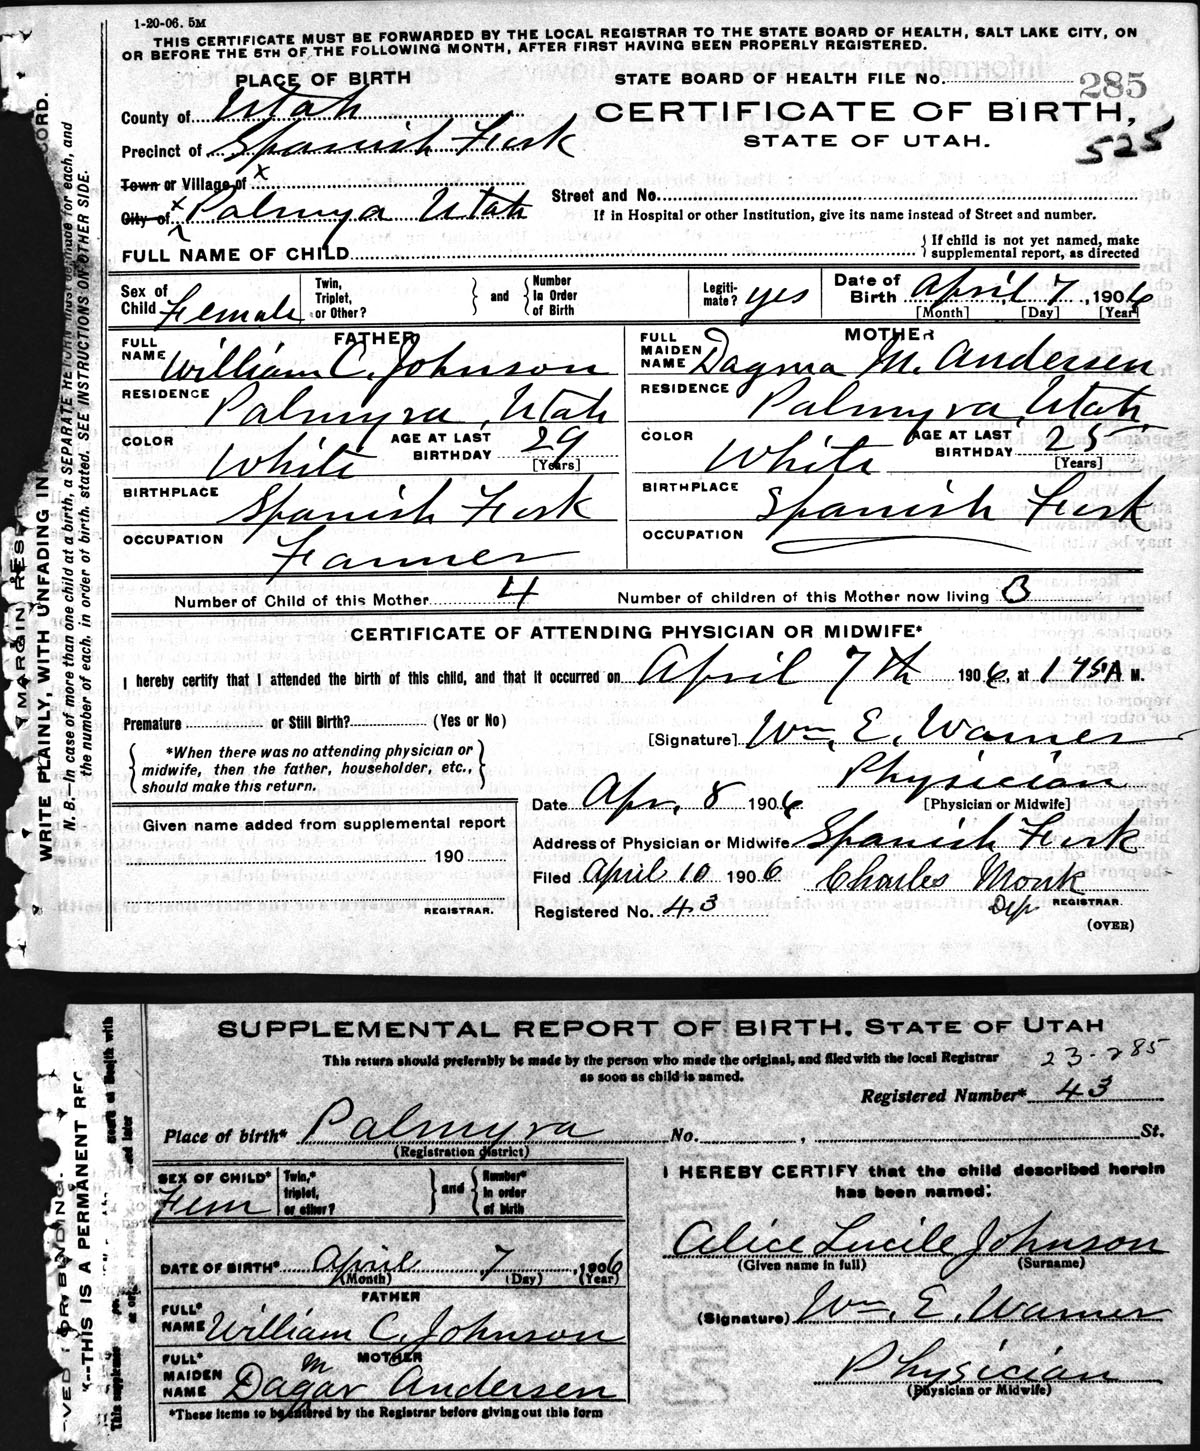 1-20-06. 5M
THIS CERTIFICATE MUST BE FORWARDED BY THE LOCAL REGISTRAR TO THE STATE BOARD OF HEALTH, SALT LAKE CITY, ON
OR BEFORE THE 5TH OF THE FOLLOWING MONTH, AFTER FIRST HAVING BEEN PROPERLY REGISTERED.
PLACE OF BIRTH
STATE BOARD OF HEALTH FILE No. 285
County of Utah
CERTIFICATE OF BIRTH,
Precinct of Spanish Fork
STATE OF UTAH.
525
Town or Village of x
City of x Palmyra Utah
Street and No.
If in Hospital or other Institution, give its name instead of Street and number.
FULL NAME OF CHILD
{ If child is not yet named, make
supplemental report, as directed
Sex of Child Female
Twin, Triplet, or Other? } and { Number In Order of Birth
Legiti-mate? yes
Date of Birth April 7, 1906
[Month] [Day] [Year]
FATHER
FULL NAME William C. Johnson
MOTHER
FULL MAIDEN NAME Dagma M. Andersen
RESIDENCE Palmyra, Utah
RESIDENCE Palmyra, Utah
COLOR White AGE AT LAST BIRTHDAY 29 [Years]
COLOR White AGE AT LAST BIRTHDAY 25 [Years]
BIRTHPLACE Spanish Fork
BIRTHPLACE Spanish Fork
OCCUPATION Farmer
OCCUPATION
Number of Child of this Mother 4
Number of children of this Mother now living 3
CERTIFICATE OF ATTENDING PHYSICIAN OR MIDWIFE*
I hereby certify that I attended the birth of this child, and that it occurred on April 7th 1906, at 1 45 A M.
Premature or Still Birth? (Yes or No)
[Signature] Wm. E. Warner
{ *When there was no attending physician or
midwife, then the father, householder, etc.,
should make this return. }
Physician
[Physician or Midwife]
Date Apr. 8 1906
Given name added from supplemental report
190
REGISTRAR.
Address of Physician or Midwife Spanish Fork
Filed April 10 1906 Charles Monk
Dep REGISTRAR.
Registered No. 43
(OVER)
MARGIN RESE
WRITE PLAINLY, WITH UNFADING IN
CORD.
N. B.—In case of more than one child at a birth, a SEPARATE RETURN must be made for each, and
the number of each, in order of birth, stated. SEE INSTRUCTIONS ON OTHER SIDE.
SUPPLEMENTAL REPORT OF BIRTH. STATE OF UTAH
This return should preferably be made by the person who made the original, and filed with the local Registrar
as soon as child is named.
23-285
Registered Number* 43
Place of birth* Palmyra No. , St.
(Registration district)
SEX OF CHILD* Fem
Twin,* triplet, or other? } and { Number* in order of birth
I HEREBY CERTIFY that the child described herein
has been named:
Alice Lucile Johnson
(Given name in full) (Surname)
DATE OF BIRTH* April 7, 1906
(Month) (Day) (Year)
FATHER
FULL* NAME William C. Johnson
(Signature) Wm. E. Warner
MOTHER
FULL* MAIDEN NAME Dagmar Andersen
Physician
(Physician or Midwife)
*These items to be entered by the Registrar before giving out this form
VED FOR BINDING.
--THIS IS A PERMANENT REC